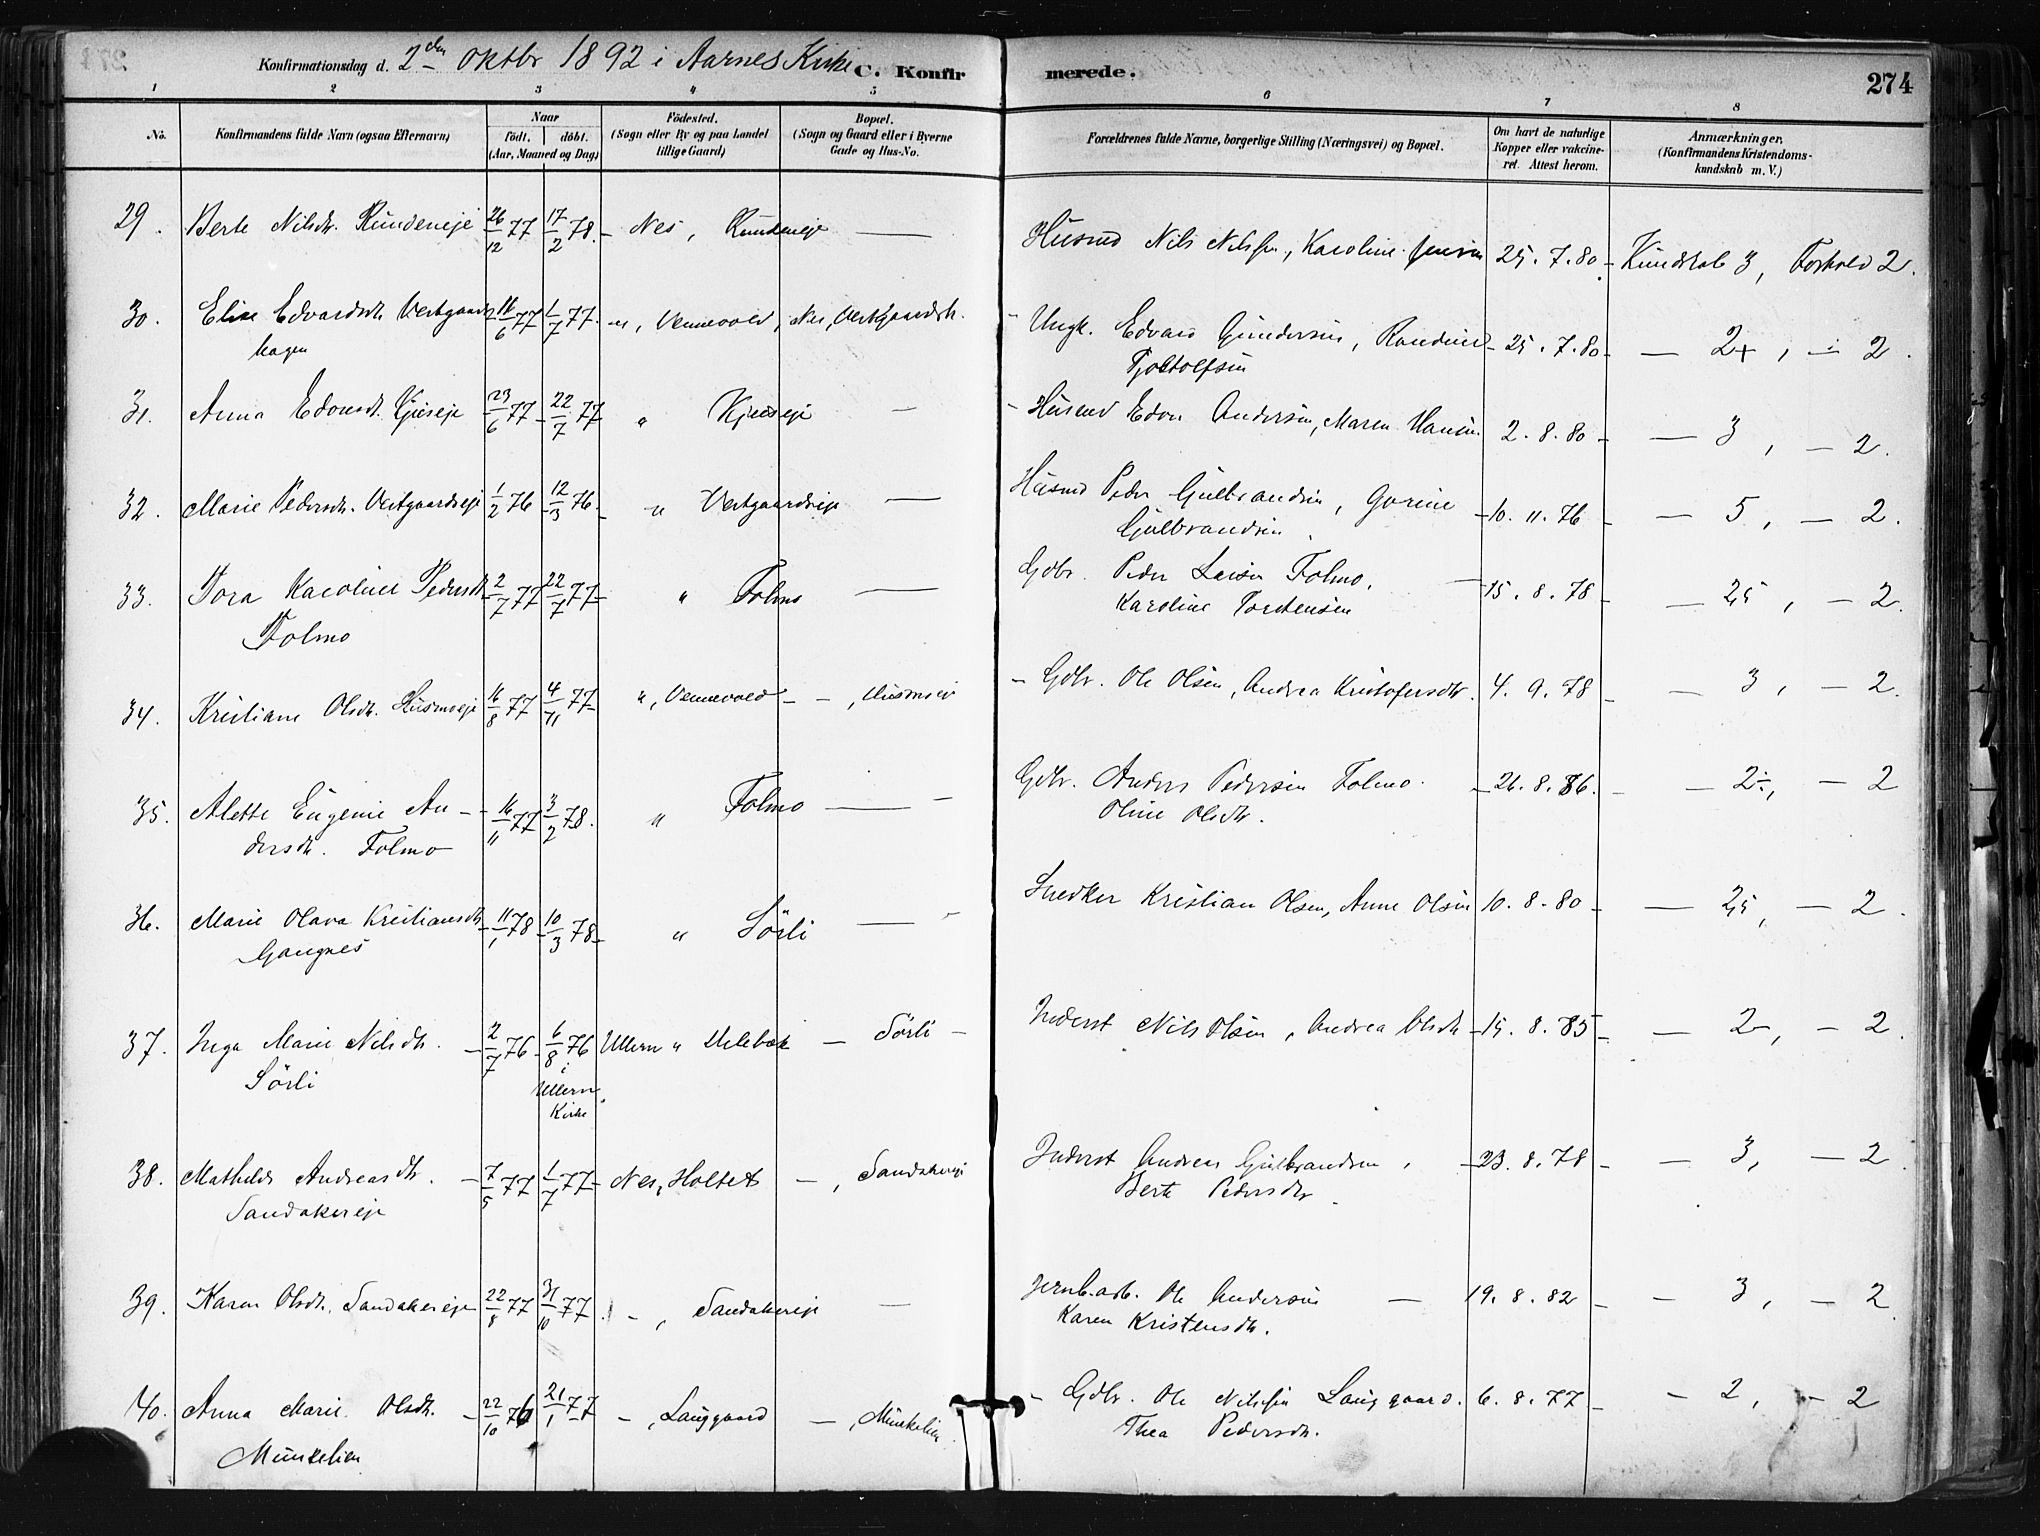 Konfirmationsdag d. 2den oktbr 1892 i Aarnes Kirke C. Konfirmerede. 274
1 2 3 4 5 6 7 8
No. Konfirmandens fulde Navn (ogsaa Efternavn) Naar født. døbt. (Aar, Maaned og Dag) Fødested. (Sogn eller By og paa Landet tillige Gaard) Bopæl. (Sogn og Gaard eller i Byerne Gade og Hus-No. Forældrenes fulde Navne, borgerlige Stilling (Næringsvei) og Bopæl. Om havt de naturlige Kopper eller vakcineret. Attest herom. Anmærkninger, (Konfirmandens Kristendomskundskab m. V.)
29. Berte Nilsdtr. Rundeneje 26/12 77 17/2 78. Nes, Rundeneje — Husmd Nils Nilssen, Karoline Jensen 25.7.80 Kundskab 3, Forhold 2.
30. Elise Edvardsdtr. Vestgaards 16/6 77 1/7 77. „, Vennevold, Nes, Vestgaardsh. Ungk. Edvard Gundersen, Randine 25.7.80 — 2+, — 2.
hagen Tjostolfsen
31. Anna Edvardsdt. Kjuseje 23/6 77 22/7 77 „ Kjuseje — Husmd Edvar Andersen, Maren Hansen 2.8.80 — 3, — 2.
32. Marie Pedersdtr. Vestgaardseje 1/2 76 12/3 76. „ Vestgaardseje — Husmd Peder Gulbrandsen, Gorine 10.11.76 — 5, — 2.
Gulbrandsen
33. Tora Karoline Pedersdtr 2/7 77 22/7 77 „ Folmo — Gdbr. Peder Larsen Folmo, 15.8.78 — 2,5, — 2.
Folmo Karoline Torstensen
34. Kristiane Olsdtr. Husmoeje 16/8 77 4/11 77 „, Vennevold — —, Husmoeje Gdbr. Ole Olsen, Andrea Kristofersdtr. 4.9.78 — 3, — 2.
35. Alette Eugenie An- 16/11 77 3/2 78. „ Folmo — Gdbr. Anders Pedersen Folmo. 26.8.86. — 2÷, — 2
dersdtr. Folmo Oline Olsdtr.
36. Marie Olava Kristiansdtr 11/1 78 10/3 78 „ Sörli — Snedker Kristian Olsen, Anne Olsen 10.8.80 — 2,5, — 2.
Gangnes
37. Inga Marie Nilsdtr. 2/7 76 6/8 76 Ullern „ Melebæk — Sörli — Inderst Nils Olsen, Andrea Olsdtr 15.8.85 — 2, — 2.
Sörli i Ullern Kirke
38. Mathilde Andreasdtr. 7/5 77 1/7 77 Nes, Holtet —, Sandakereje Inderst Andreas Gulbrandsen, 23.8.78 — 3, — 2
Sandakereje Berte Pedersdtr.
39. Karen Olsdtr. Sandakereje 22/8 77 31/10 77. —, Sandakereje — Jernb.arb. Ole Andersen — 19.8.82 — 3, — 2
Karen Kristensdtr.
40. Anna Marie Olsdtr. 22/10 76 21/1 77 —, Langgaard —, Munkelien. Gdbr. Ole Nilssen Langgaard. 6.8.77 — 2, — 2
Munkelien Thea Pedersdtr.